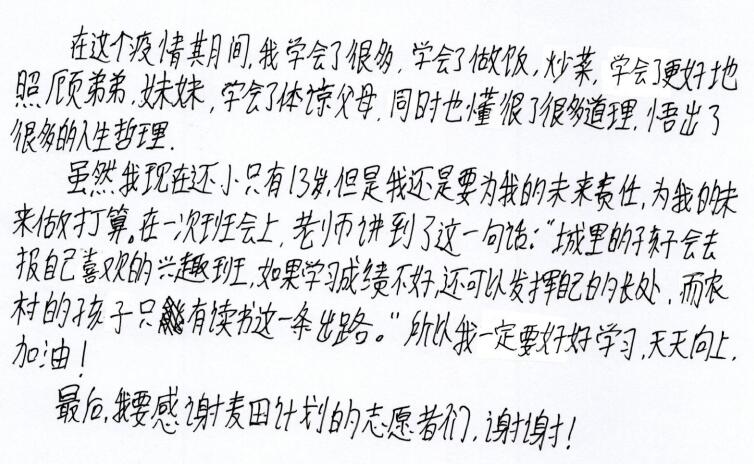 在这个疫情其月间,我学会了很多,学会了做饭,炒菜,学会了更好地
照顾弟弟,妹妹,学会了体谅父母,同时也懂很了很多道理,悟出了
很多的人生哲理.
虽然我现在还小只有13岁,但是我还是要为我的未来责任,为我的未
来做打算。在一次班会上,老师讲到了这一句话:“城里的孩子会去
报自己喜欢的兴趣班,如果学习成绩不好,还可以发挥自己的长处,而农
村的孩子只有读书这一条出路。”所以我一定要好好学习,天天向上,
加油!
最后,我要感谢麦田计划的志愿者们,谢谢!